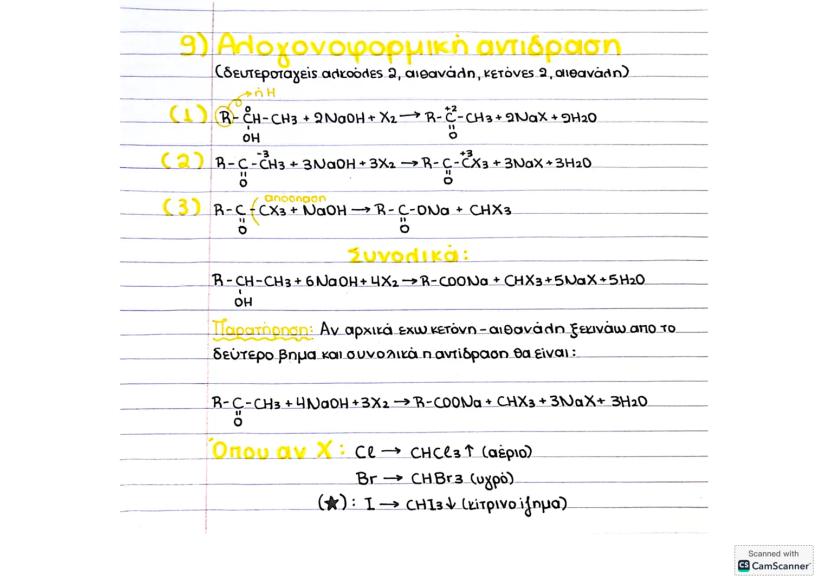 9) Αλογονοφορμική αντίδραση
(δευτεροταγείς αλκοόλες 2, αιθανάλη, κετόνες 2, αιθανάλη)
→ή Η
(1) R-CH-CH3 + 2NaOH + X2 → R-C-CH3 + 2NaX + 2H2O
0 +2
OH O
(2) R-C-CH3 + 3NaOH + 3X2 → R-C-CX3 + 3NaX + 3H2O
-3 +3
O O
απόσπαση
(3) R-C-CX3 + NaOH → R-C-ONa + CHX3
O O
Συνολικά:
R-CH-CH3 + 6NaOH + 4X2 → R-COONa + CHX3 + 5NaX + 5H2O
OH
Παρατήρηση: Αν αρχικά έχω κετόνη - αιθανάλη ξεκινάω από το
δεύτερο βήμα και συνολικά η αντίδραση θα είναι:
R-C-CH3 + 4NaOH + 3X2 → R-COONa + CHX3 + 3NaX + 3H2O
O
Όπου αν Χ: Cl → CHCl3 ↑ (αέριο)
Br → CHBr3 (υγρό)
(★): I → CHI3 ↓ (κίτρινο ίζημα)
Scanned with
CS CamScanner